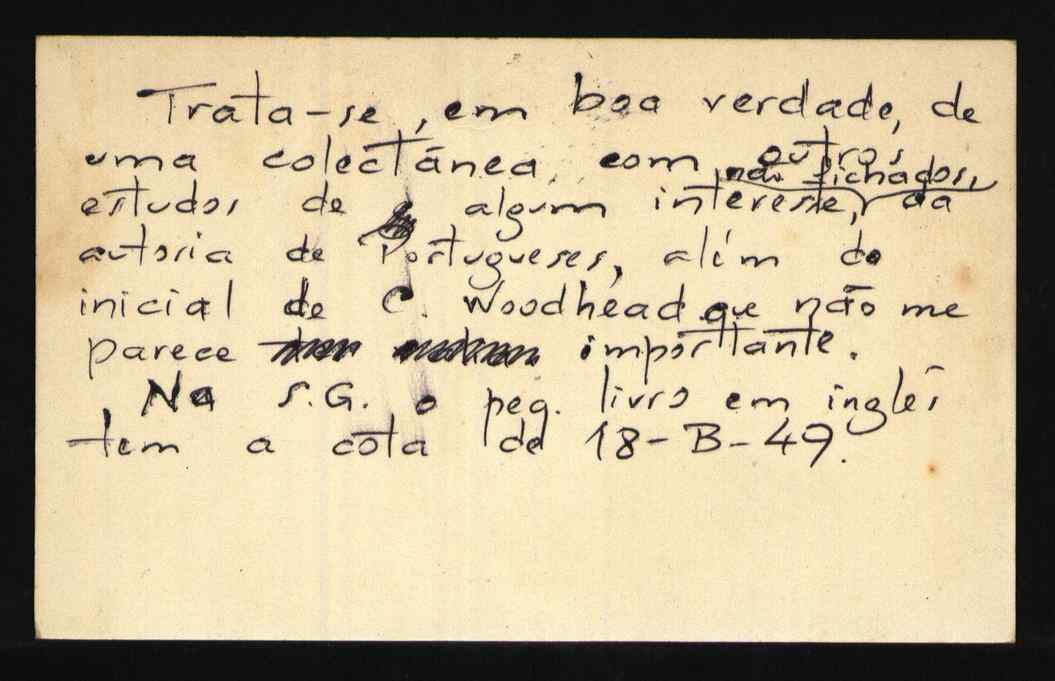 Trata-se, em boa verdade, de
uma colectânea, com outros
não fichados,
estudos de algum interesse, da
autoria de Portugueses, além do
inicial de C. Woodhead que não me
parece importante.
Na S.G. o peq. livro em inglês
tem a cota de 18-B-49.